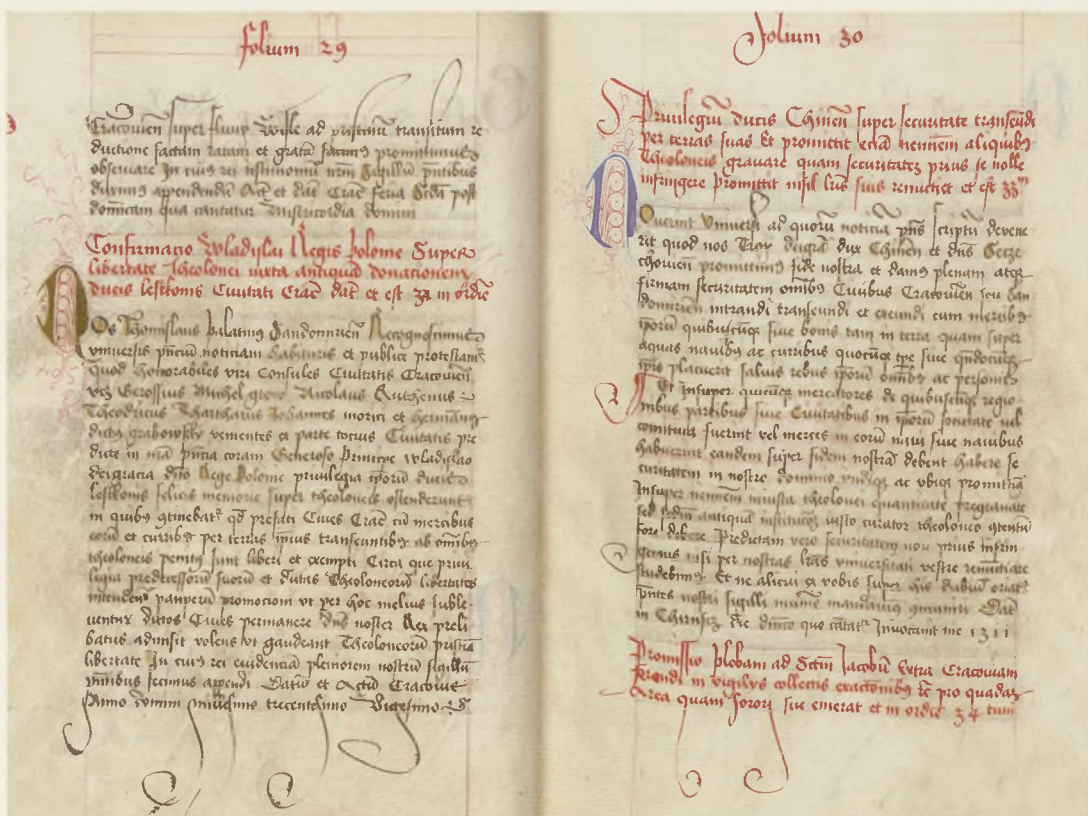 folium 29
Cracovien super fluvio Wisle ad pristinum transitum re
ductione factam ratam et gratam promittimus
observare In cuius rei testimonium nrm Sigillum pntibus
duximus appendendum Act et dat Crac feria post
domicam qua cantatur misericordia domini
Confirmacio Wladislai Regis polonie Super
libertate Theolonei iuxta antiquam donacionem
ducis lestkonis Civitati Crac dat et est in ordie
Nos Thomislaus palatinus Sandomirien Recognoscimus
universis pncium noticiam habituris et publice protestam
quod honorabiles viri Consules Civitatis Cracovien
Gerossius Michel Nicolaus
Theodricus Johannes morici et hermanus
dictus venientes ex parte tocius Civitatis pre
dicte in pncia coram Generoso Principe wladislao
deigracia dno Rege Polonie privilegia iporum ducis
lestkonis felicis memorie super theoloneis ostenderunt
in quibus qd prefati Cives Crac cum mercibus
eorum et curribus per terras ipius transeuntibus ab omibus
theoloneis penitus sunt liberi et exempti Circa que privi
ligia predecessorum suorum et Theoloneorum libertates
pauperum promocioni ut per hoc melius suble
ventur dictos Cives permanere dns noster Rex preli
batus admisit volens ut gaudeant Theoloneorum pristina
libertate In cuius rei evidenciam pleniorem nostrum sigillum
pntibus fecimus appendi Datum et Actum Cracovie
Anno domini millesimo trecentesimo Vicesimo
folium 30
Privilegium ducis Chinen super securitate transeundi
per terras suas Et promittit eciam neminem aliquibus
Theoloneis gravare quam securitatem prius se nolle
infringere Promittit nisi lris suis renuctiet et est 33m
Noverint Universi ad quorum noticiam pns scriptum devene
rit quod nos deigra dux Chinen et dns
promittimus fide nostra et damus plenam atque
firmam securitatem omibus Civibus Cracovien seu San
domirien intrandi transeundi et exeundi cum mercibus
iporum quibuscumque sive bonis tam in terra quam super
aquas navibus ac curribus quocumque tpe sive
ipis placuerit salvis rebus iporum omibus ac personis
Et Insuper quicumque mercatores de quibuscumque regio
nibus partibus sive Civitatibus in iporum societate vel
comitiva fuerint vel merces in eorum navi sive navibus
habuerint eandem super fidem nostram debent habere se
curitatem in nostro dominio undique ac ubique promittimus
Insuper neminem iniusta theolonei quantitate pregravare
sed antiquam iusto theoloneo
fore debere Predictam vero securitatem non prius infrin
gemus nisi per nostras lras universitati vestre renuctiare
studebimus Et ne alicui ex vobis super his dubium oriatur
pntes nostri sigilli Dat
in die dnico quo catat Invocavit me 1311
Promissio plebani ad Sctm Jacobum Extra Cracoviam
in vigiliis collectis exactionibus pro quadam
Area quam sorori sue emerat et in ordie 34 tum